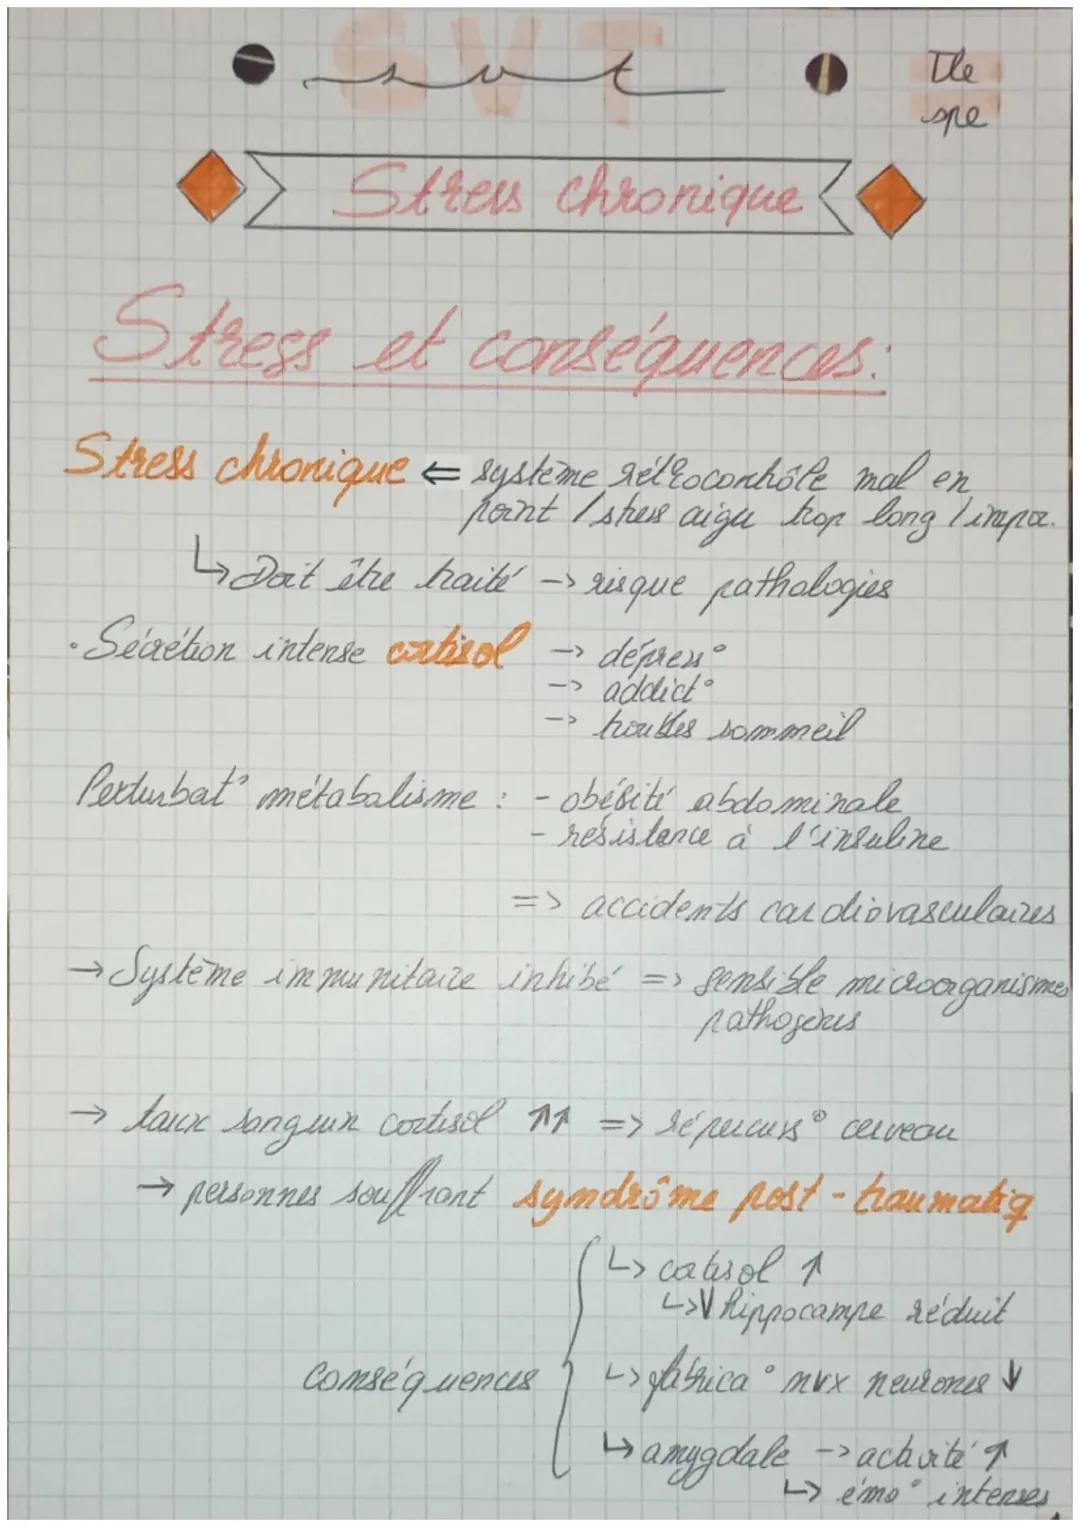 SVT
svt
Tle
spe
Stress chronique
Stress et conséquences:
Stress chronique ⇐ système rétrocontrôle mal en
point / stress aigu trop long / impor.
↳ Doit être traité -> risque pathologies
• Sécrétion intense cortisol -> dépress°
-> addict°
-> troubles sommeil
Perturbat° métabolisme : - obésité abdominale
- résistance à l'insuline
=> accidents cardiovasculaires
→ Système immunitaire inhibé => sensible microorganismes
pathogènes
→ taux sanguin cortisol ↑↑ => répercuss° cerveau
→ personnes souffrant syndrôme post-traumatiq
↳ cortisol ↑
↳ V hippocampe réduit
conséquences
↳ fabrica° nvx neurones ↓
↳ amygdale -> activité ↑
↳ émo° intenses